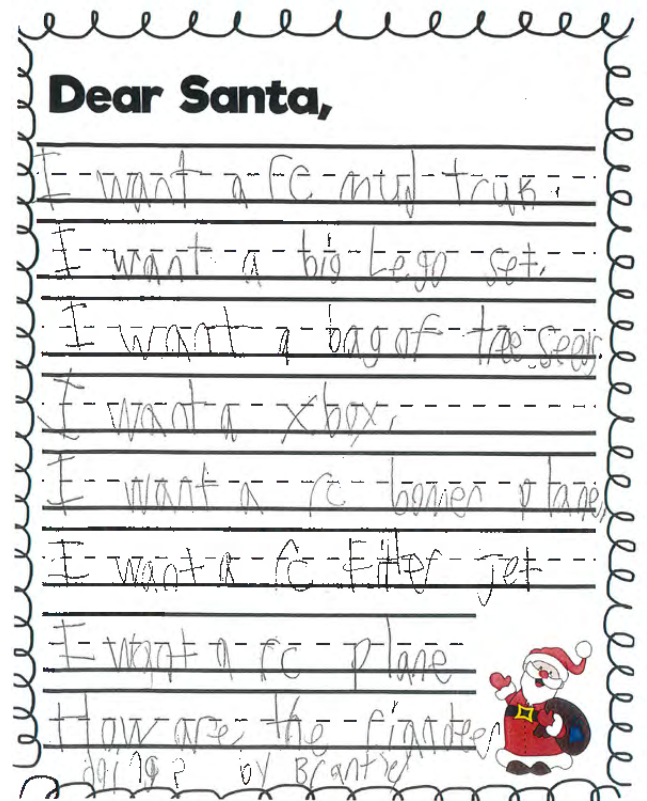 Dear Santa,
I want a rc mud truk.
I want a big Lego set.
I want a bag of tree seeds
I want a xbox.
I want a rc bomer plane,
I want a rc Fiter jet
I want a rc plane
How are the
doing? by